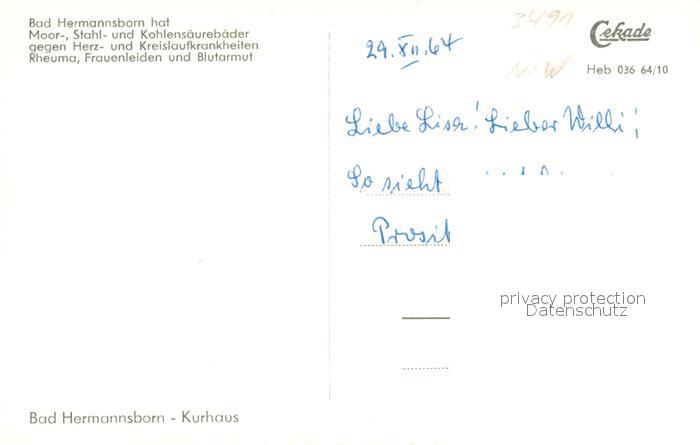 Bad Hermannsborn hat
Moor-, Stahl- und Kohlensäurebäder
gegen Herz- und Kreislaufkrankheiten
Rheuma, Frauenleiden und Blutarmut
3491
NRW
Cekade
Heb 036 64/10
29.XII.64
Liebe Lisa! Lieber Willi!
So sieht
Prosit
privacy protection
Datenschutz
Bad Hermannsborn - Kurhaus